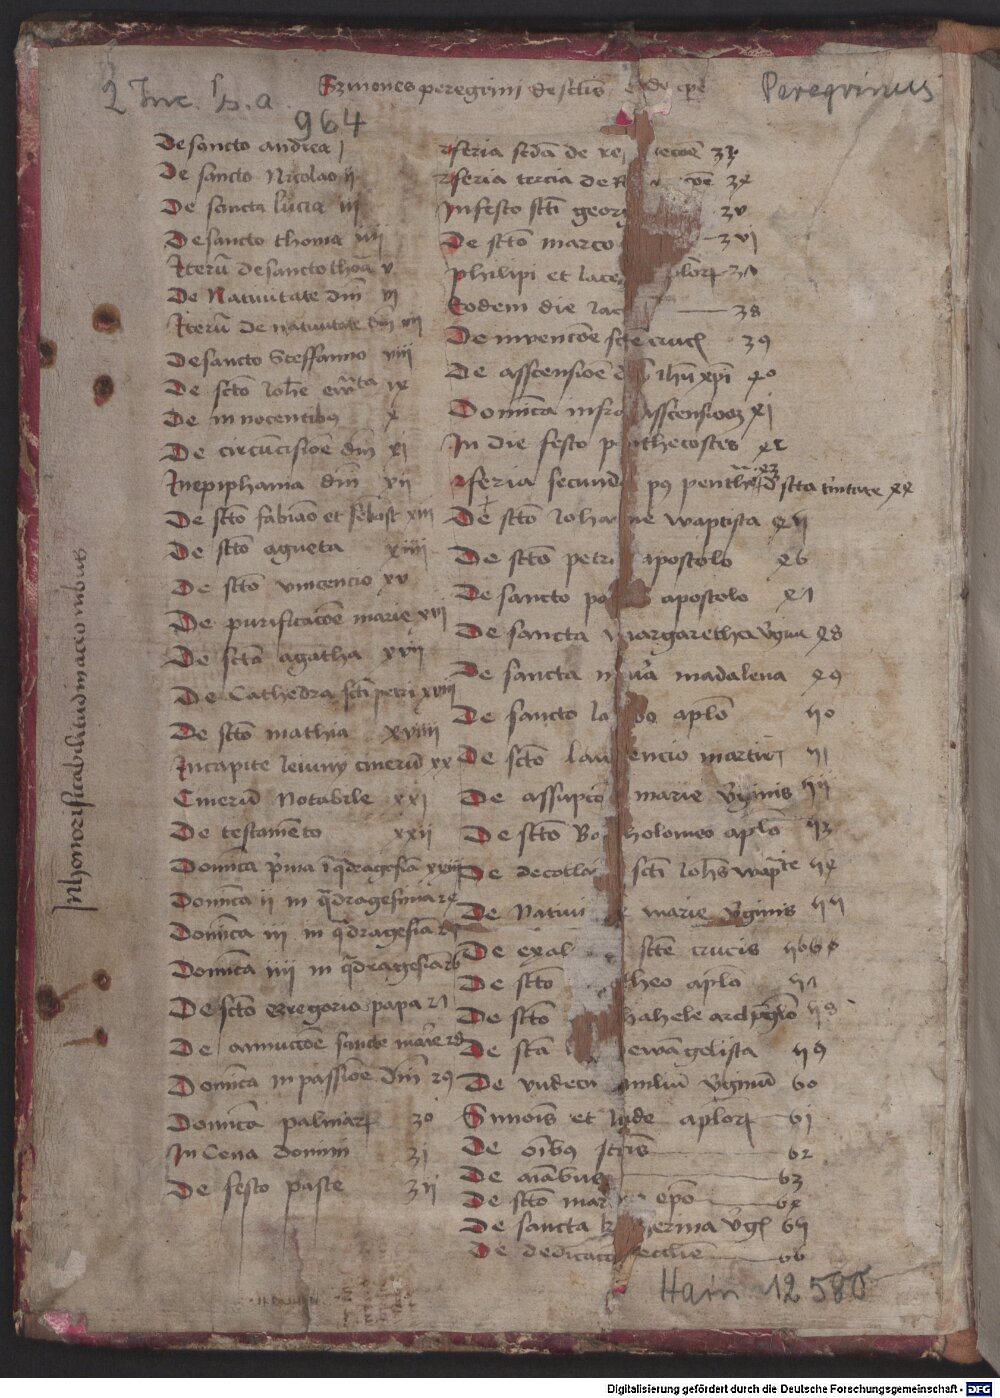 2 Inc. s. a.
964
Sermones peregrini de sctis
Peregrinus
De sancto andrea j
De sancto Nicolao ii
De sancta lucia iii
De sancto thoma iiii
Iterū de sancto thoā v
De Natiuitate dn̄i vi
Iterū de natiuitate dn̄i vii
De sancto Steffanno viii
De sctō Ioh̄e ewāta ix
De innocentibus x
De circūcisiōe dn̄i xi
In epiphania dn̄i xii
De sctō fabiāo et sebast xiii
De sctō agneta xiiii
De sctō vincencio xv
De purificacōe marie xvi
De sctō agatha xvii
De Cathedra sctī petri xviii
De sctō mathia xviiii
In capite Ieiuny cinerū xx
Cinerū Notabile xxi
De testamēto xxii
Domīca p̄ma ī q̄dragesīa xxiii
Domīca ii in q̄dragesima 24
Domīca iii in q̄dragesīa
Domīca iiii in q̄dragesīa
De sctō Gregorio papa 27
De annūccōe sancte marie 28
Domīca in passiōe dn̄i 29
Domīca palmarꝝ 30
In Cena domini 31
De festo pasce 32
feria scdā de re
feria tercia de
In festo sctī geor 3v
De sctō marco 3vi
philipi et Iaco plorꝝ 37
Eodem die 38
De invencōe scte crucꝭ 39
De asscensiōe ihū xpī 40
Domīca infra asscensiōꝫ 41
In die festo penthecostes 42
feria secunda pꝰ penth
De sctō Iohanne waptista
De sctō petri apostolo 46
De sancto pa apostolo 47
De sancta margaretha v̄gīa 48
De sancta ma madalena 49
De sancto Ia apl̄o 50
De sctō lau encio martirꝭ 51
De assūpcō marie v̄ginis 52
De sctō Bar holomeo apl̄o 53
De decolla sctī Ioh̄s wapte 54
De Natiui marie v̄ginis 55
De exal scte crucis 56
De sctō theo aplo 57
De sctō hahele archāglō 58
De sctā ewāgelista 59
De vndecī miliū v̄ginū 60
Simōis et Iude aplorꝝ 61
De oībꝰ sctīs 62
De aīabus 63
De sctō mar epō 64
De sancta k erina v̄gꝭ 65
De dedicacō ecclie 66
In honorificabilitudinacionibus
Hain 12580
Digitalisierung gefördert durch die Deutsche Forschungsgemeinschaft - DFG